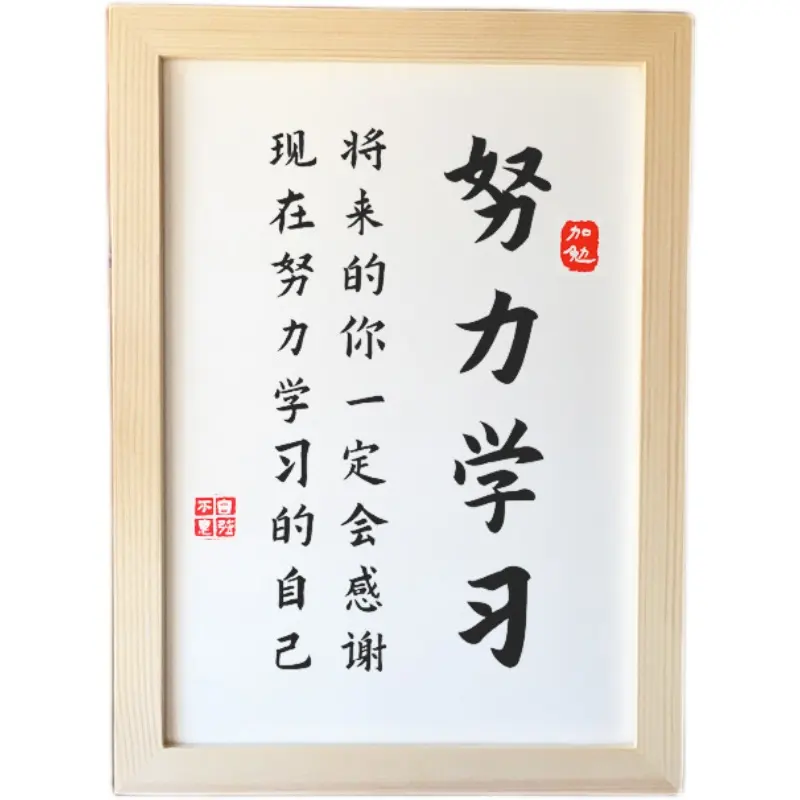 努力学习
加勉
将来的你一定会感谢
现在努力学习的自己
自强
不息